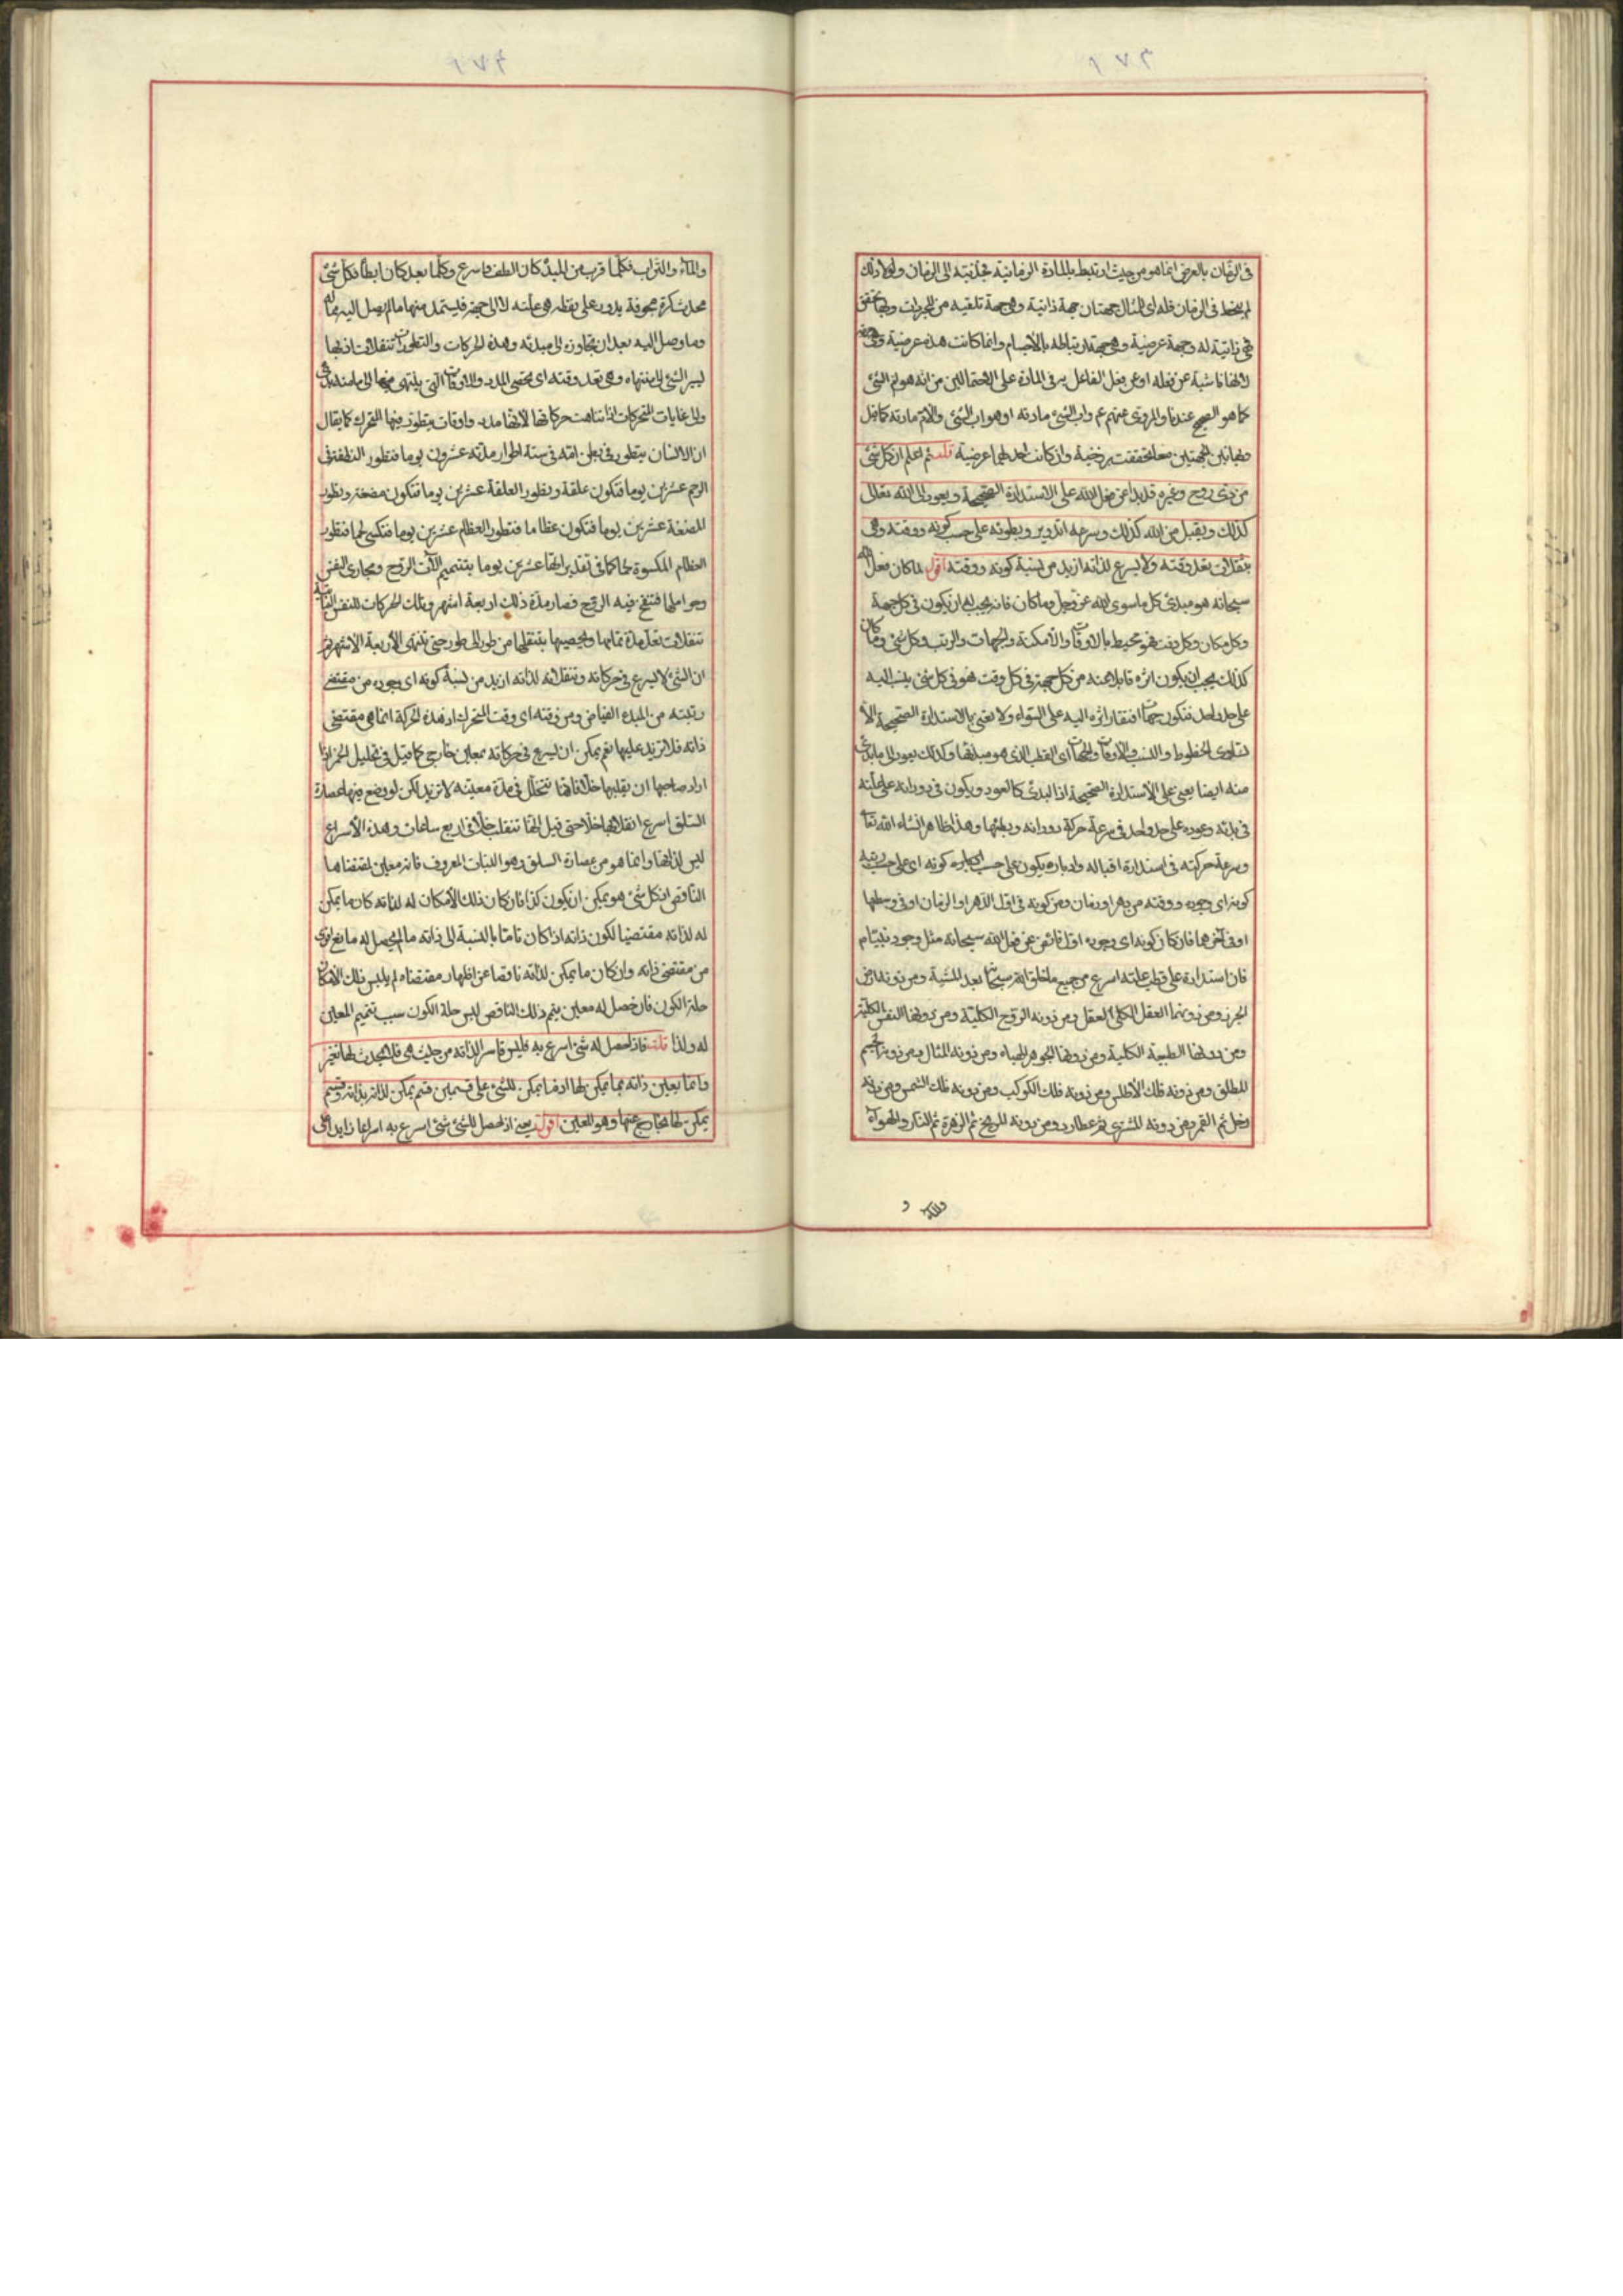 في الزمان بالعرض انما هو من حيث ارتبط بالمادة الزمانية فجذبته الى الزمان ولولا ذلك
لم ينحط في الزمان فله اى المثال جهتان جهة ذاتية وهى جهة تلقيه من المجردات وبها تحقق
فهي ذاتية له وجهة عرضية وهى جهة ارتباطه بالاجسام وانما كانت هذه عرضية
لانها ناشية عن فعله او عن فعل الفاعل به في المادة على الاحتمالين من انه هو ابن الشئ
كما هو الصحيح عندنا والمروى عنهم عم واب الشئ مادته او هو اب الشئ والام مادته كما قيل
وبهاتين الجهتين معا تحققت برزخية وان كانت احدٰهما عرضية قلت ثم اعلم ان كل شئ
من ذى روح وغيره قد بدا عن فعل الله على الاستدارة الصحيحة ويعود الى الله تعالى
كذلك ويقبل من الله كذلك وسرعة التدوير وبطوئه على حسب كونه ووقته وهى
تنقلات بعد وقته ولا يسرع لذاته ازيد من نسبة كونه ووقته اقول لما كان فعل الله
سبحانه هو مبدئ كل ما سوى الله عز وجل وما كان فانه يجب ان يكون في كل جهة
وكل مكان وكل وقت فهو محيط بالاوقات والامكنة والجهات والرتب وكل شئ وما كان
كذلك يجب ان يكون اثره قابلا عنه من كل جهة في كل وقت فهو في كل شئ ينسب اليه
على حد واحد فتكون جهات افتقار اثره اليه على السواء ولا نعنى بالاستدارة الصحيحة الا
تساوى الخطوط والنسب والاوقات والجهات الى القطب الذى هو مبدئها وكذلك يعود الى ما بدئ
منه ايضا يعنى على الاستدارة الصحيحة اذ البدئ كالعود ويكون في دورانه على علته
في بدئه وعوده على حد واحد في سرعة حركة دورانه وبطئها وهذا ظاهر انشاء الله تعا
وسرعة حركته في استدارة اقباله وادباره يكون على حسب كونه اى على حسب رتبة
كونه اى وجوده ووقته من دهر او زمان ومن كونه في اول الدهر او الزمان او في وسطها
او في آخرهما فان كان كونه اى وجوده اول فائض عن فعل الله سبحانه مثل وجود نبينا م
فان استدارة على قطب علته اسرع من جميع ما خلق الله سبحانه بعد المشية ومن دونه ارض
الجرز ومن دونها العقل الكلى العقل ومن دونه الروح الكلية ومن دونها النفس الكلية
ومن دونها الطبيعة الكلية ومن دونها الجوهر الهباء ومن دونه المثال ومن دونه الجسم
المطلق ومن دونه فلك الاطلس ومن دونه فلك الكوكب ومن دونه فلك الشمس ومن دونه
زحل ثم القمر ومن دونه المشترى ثم عطارد ومن دونه المريخ ثم الزهرة ثم النار والهواء
والماء
والماء والتراب فكلما قرب من المبدء كان الطف واسرع وكلما بعد كان ابطأ فكل شئ
محدث كرة مجوفة يدور على نقطة هى علته لا الى جهة فليستمد منها ما لم يصل اليه
وما وصل اليه بعد ان تجاوزه الى مبدئه وهذه الحركات والتطورات تنقلات
يسير الشئ الى منتهاه وهى بعد وقته اى تحصى المدد والاوقات التى ينتهى فيها الى
والى غايات المتحركات اذا تناهت حركاتها لانها مدد واوقات يتطور فيها المتحرك كما يقال
ان الانسان يتطور في بطن امه في ستة اطوار مدته عشرون يوما فتطور النطفة في
الرحم عشرين يوما فتكون علقة وتطور العلقة عشرين يوما فتكون مضغة وتطور
المضغة عشرين يوما فتكون عظاما فتطور العظام عشرين يوما فتكسى لحما فتطور
العظام المكسوة لحما كما في تقدير الها عشرين يوما بتتميم آلات الروح ومجارى النفس
وحواملها فتنفخ فيه الروح فصار مدة ذلك اربعة اشهر وتلك الحركات للنفس النباتية
تنقلات بعد مدة تمامها ويحصيها بتنقلها من طور الى طور حتى تنتهى الاربعة الاشهر ثم
ان الشئ لا يسرع في حركاته وتنقلاته لذاته ازيد من نسبة كونه اى وجوده من مقتضى
رتبته من المبدء الفياض ومن وقته اى وقت المتحرك اذ هذه الحركة انما هى مقتضى
ذاته فلا تزيد عليها نعم يمكن ان يسرع في حركاته بمعين خارج كما قيل في تحليل الخمر اذا
اراد صاحبها ان يقلبها خلا فانها تتحلل في مدة معينة لا تزيد لكن لو وضع فيها عصارة
السلق اسرع انقلابها خلا حتى قيل انها تنقلب خلا في اربع ساعات وهذه الاسراع
ليس لذاتها وانما هو من عصارة السلق وهو النبات المعروف فانه معين لمقتضاها
الناقص ان كل شئ هو يمكن ان يكون كذا فان كان ذلك الامكان له لذاته كان ما يمكن
له لذاته مقتضيا لكون ذاته اذا كان تاما بالنسبة الى ذاته ما لم يحصل له مانع اقوى
من مقتضى ذاته وان كان ما يمكن لذاته ناقصا عن اظهار مقتضاه لم يلبس ذلك الامكان
حلة الكون فان حصل له معين يتم ذلك الناقص لبس حلة الكون بسبب تتميم المعين
له ولذا قلت فاذا حصل له شئ اسرع به فليس قاسرا لذاته من حيث هى فلا يحدث لها تغير
وانما يعين ذاته بما يمكن لها اذ ما يمكن للشئ على قسمين قسم يمكن لذاته بذاته وقسم
يمكن لها بخارج عنها وهو المعين اقول يعنى اذا حصل للشئ شئ اسرع به اسراعا زايدا على